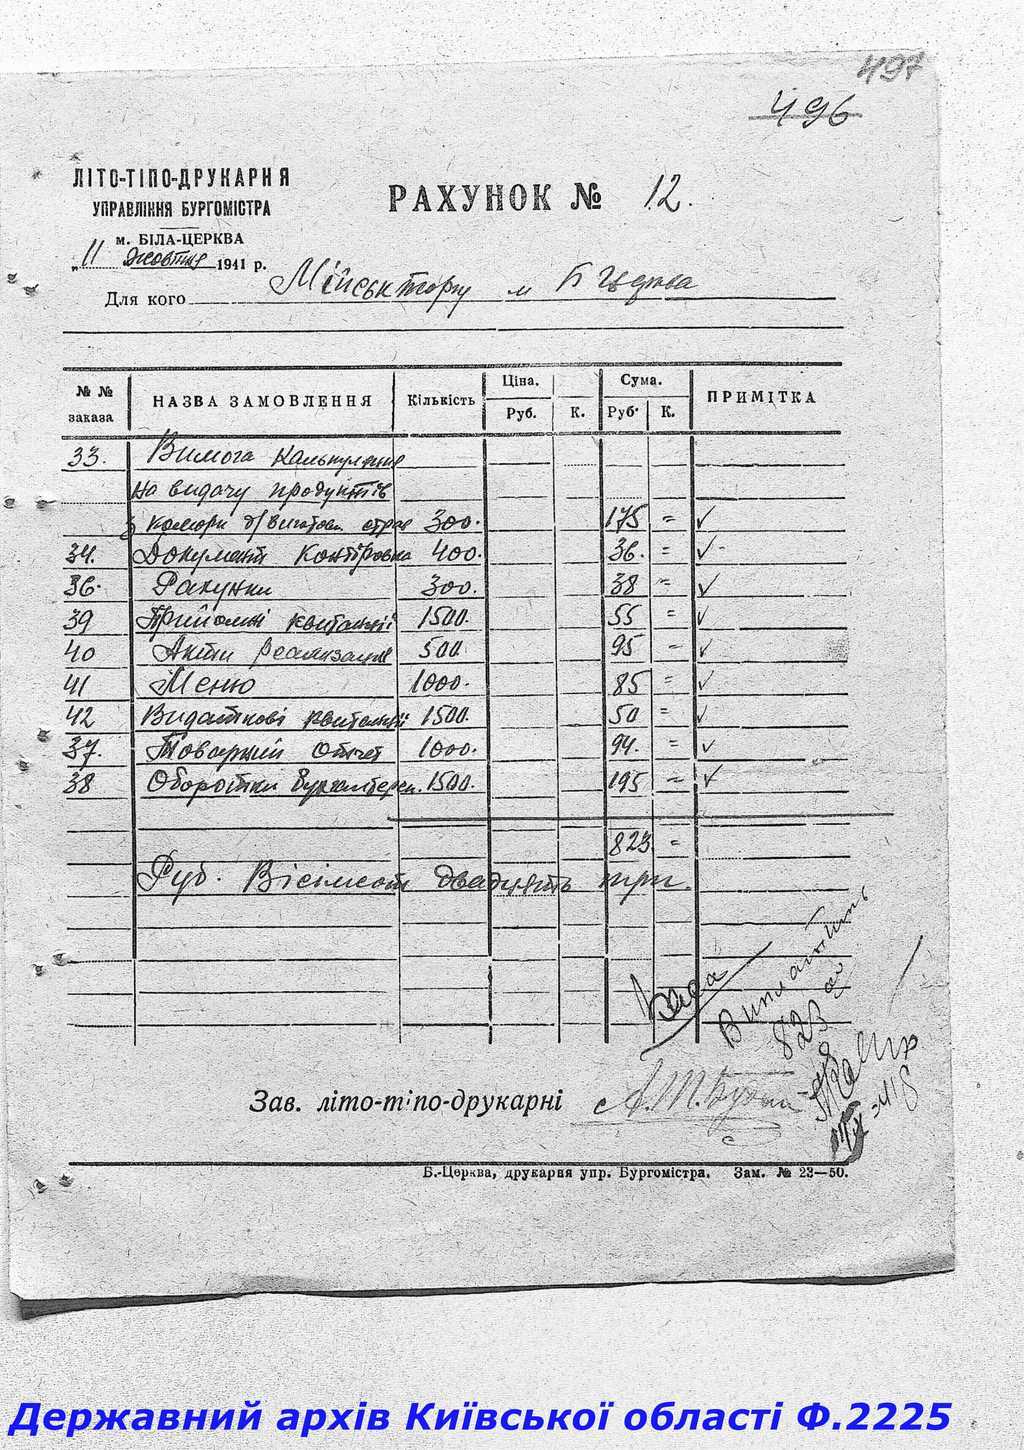 497
496
ЛІТО-ТІПО-ДРУКАРНЯ
УПРАВЛІННЯ БУРГОМІСТРА
м. БІЛА-ЦЕРКВА
„11 жовтня 1941 р.
РАХУНОК № 12.
Для кого Міськторгу м Б Церква
№ № заказа НАЗВА ЗАМОВЛЕННЯ Кількість Ціна. Руб. К. Сума. Руб. К. ПРИМІТКА
33. Вимога калькуляція
на видачу продуктів
з комори 300. 175 =
34. Документ Контіровка 400. 36. =
36. Рахунки 300. 38 =
39 Прийомні квитанції 1500. 55 =
40 Акти реалізація 500 95 =
41 Меню 1000. 85 =
42 Видаткові квитанції 1500. 50 =
37. Товарний отчет 1000. 94. =
38 Оборотки бухгалтерск. 1500. 195 =
823 =
Руб. Вісімсот двадцять три.
Виплатить
823
Зав. літо-тіпо-друкарні
Б.-Церква, друкарня упр. Бургомістра. Зам. № 23—50.
Державний архів Київської області Ф.2225